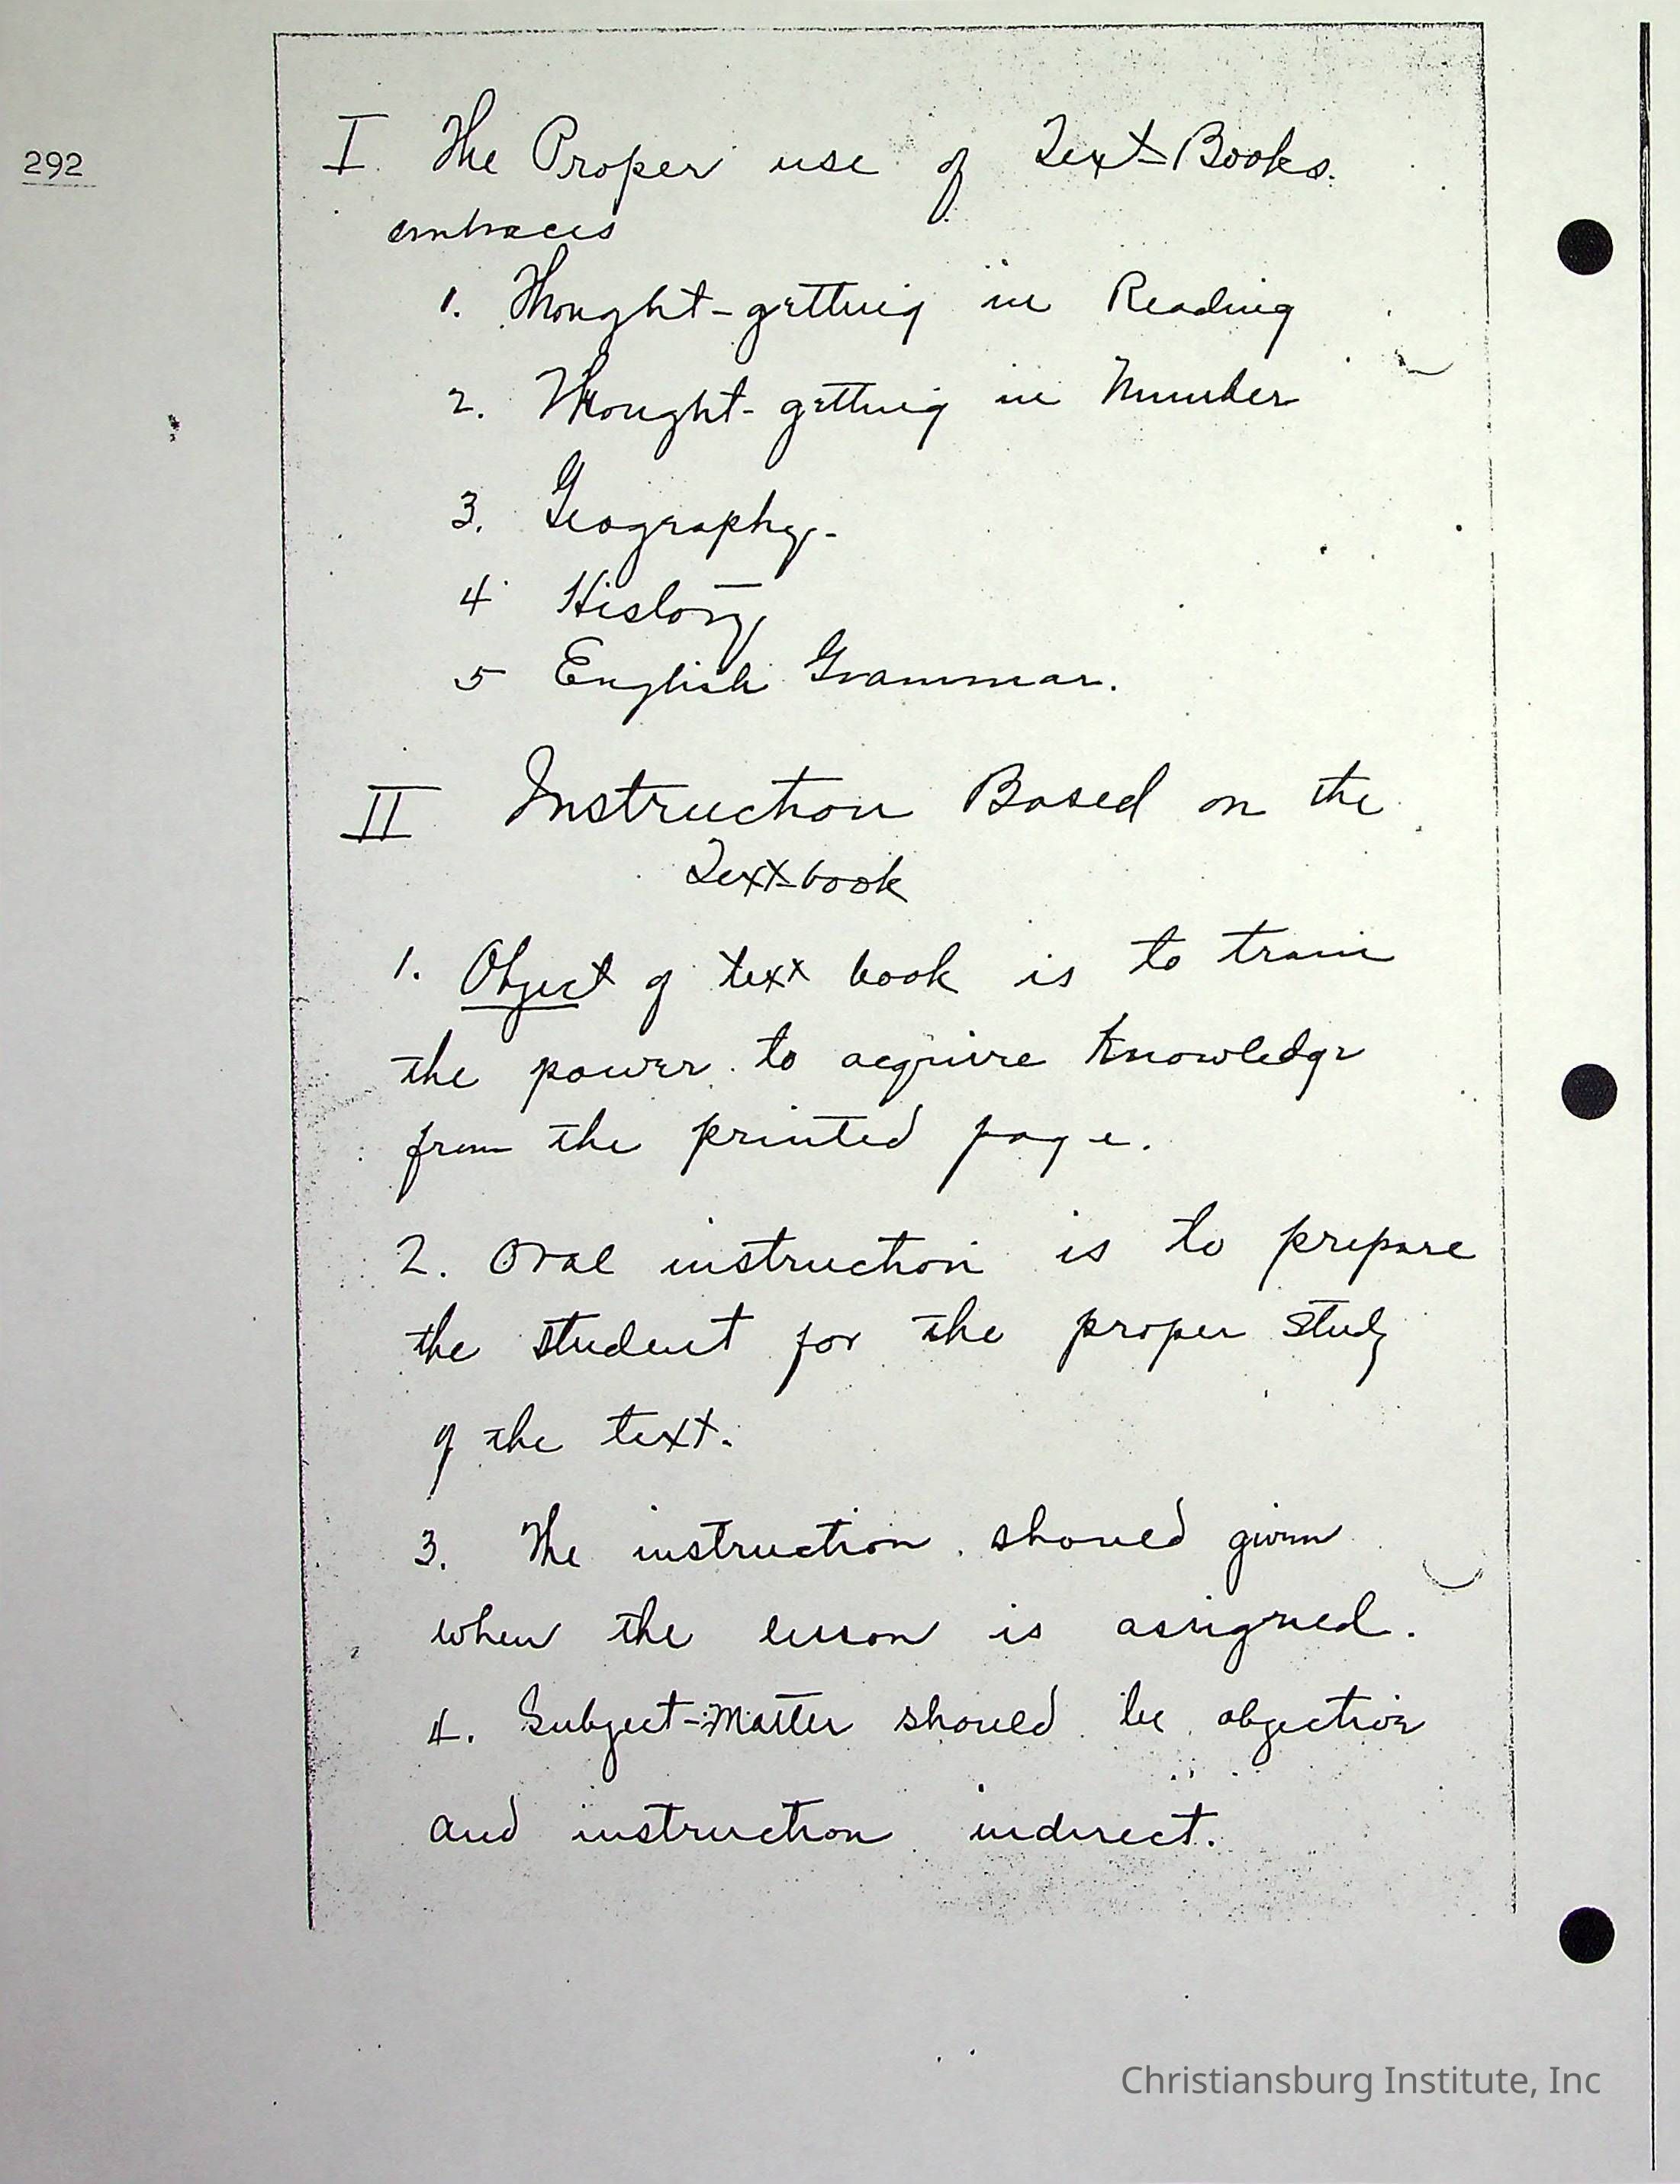 292
I. The Proper use of Text-Books.
embraces
1. Thought-getting in Reading
2. Thought-getting in Number
3. Geography.
4 History
5 English Grammar.
II Instruction Based on the
Text-book
1. Object of text book is to train
the power to acquire knowledge
from the printed page.
2. Oral instruction is to prepare
the student for the proper study
of the text.
3. The instruction should given
when the lesson is assigned.
4. Subject-Matter should be objective
and instruction indirect.
Christiansburg Institute, Inc